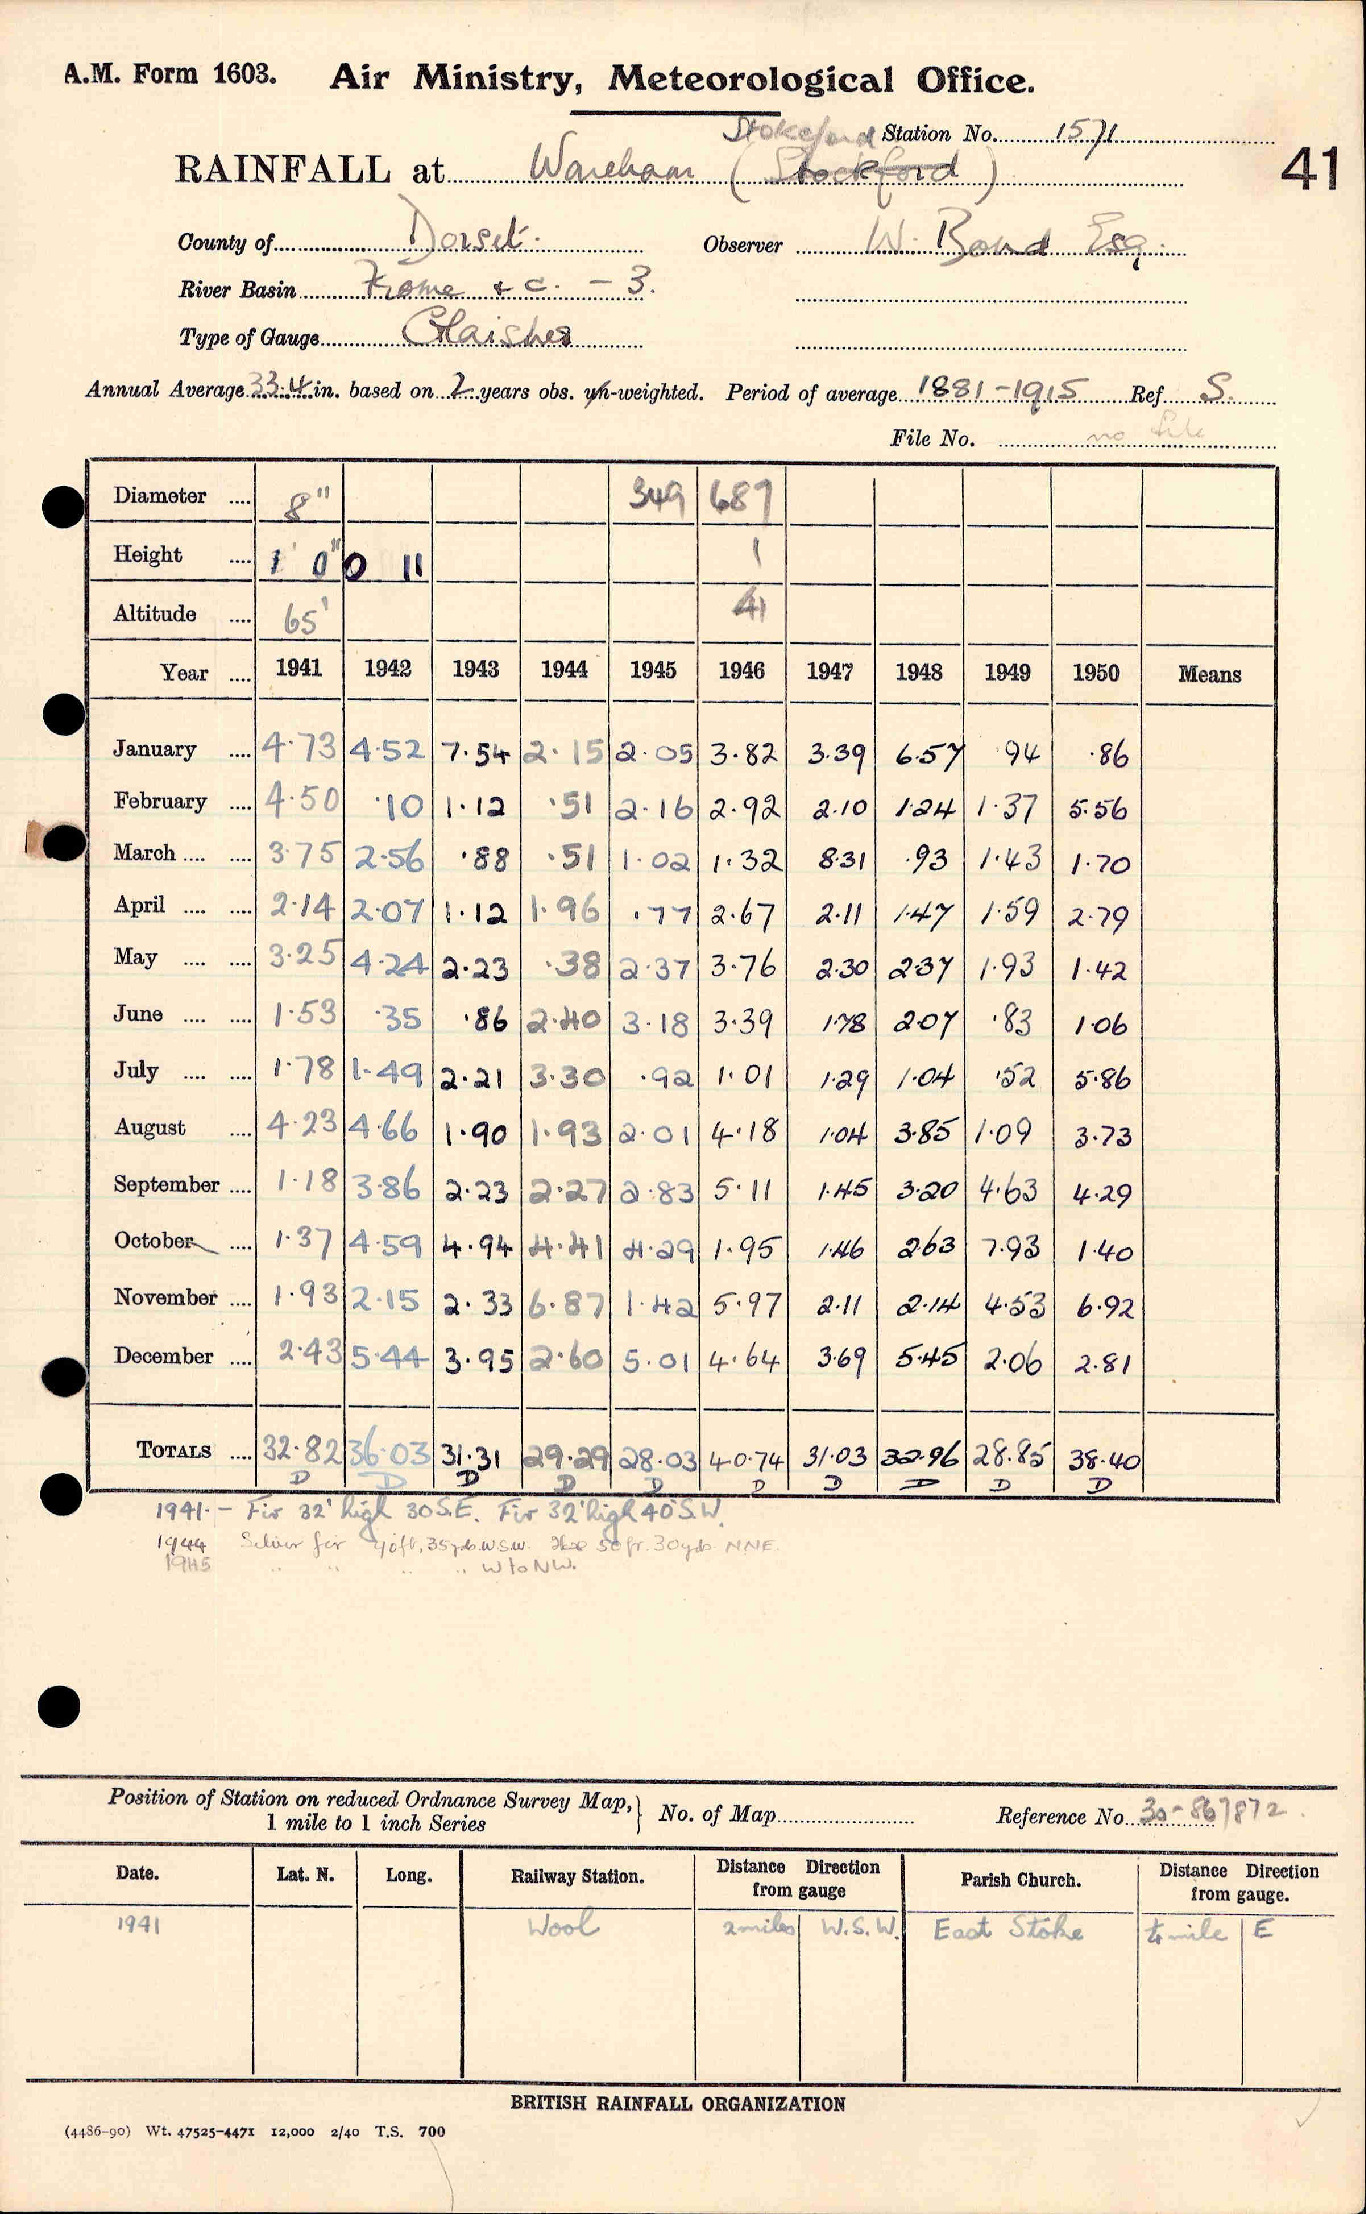 A.M. Form 1603. Air Ministry, Meteorological Office.
Stokeford Station No. 1571
RAINFALL at Wareham (Stockford) 41
County of Dorset. Observer W. Bond Esq.
River Basin Frome & c. - 3.
Type of Gauge Glaisher
Annual Average 33.4 in. based on 2 years obs. un-weighted. Period of average 1881-1915 Ref S.
File No. no file
Diameter .... 8" 349 687
Height .... 1' 0" 0 11 1
Altitude .... 65' 41
Year .... 1941 1942 1943 1944 1945 1946 1947 1948 1949 1950 Means
January .... 4.73 4.52 7.54 2.15 2.05 3.82 3.39 6.57 .94 .86
February .... 4.50 .10 1.12 .51 2.16 2.92 2.10 1.24 1.37 5.56
March .... .... 3.75 2.56 .88 .51 1.02 1.32 8.31 .93 1.43 1.70
April .... .... 2.14 2.07 1.12 1.96 .77 2.67 2.11 1.47 1.59 2.79
May .... .... 3.25 4.24 2.23 .38 2.37 3.76 2.30 2.37 1.93 1.42
June .... .... 1.53 .35 .86 2.40 3.18 3.39 1.78 2.07 .83 1.06
July .... .... 1.78 1.49 2.21 3.30 .92 1.01 1.29 1.04 .52 5.86
August .... 4.23 4.66 1.90 1.93 2.01 4.18 1.04 3.85 1.09 3.73
September .... 1.18 3.86 2.23 2.27 2.83 5.11 1.45 3.20 4.63 4.29
October .... 1.37 4.59 4.94 4.41 4.29 1.95 1.46 2.63 7.93 1.40
November .... 1.93 2.15 2.33 6.87 1.42 5.97 2.11 2.14 4.53 6.92
December .... 2.43 5.44 3.95 2.60 5.01 4.64 3.69 5.45 2.06 2.81
TOTALS .... 32.82 36.03 31.31 29.29 28.03 40.74 31.03 32.96 28.85 38.40
D D D D D D D D D D
1941. - Fir 32' high 30 S.E. Fir 32' high 40° S.W.
1944 Silver fir 40ft, 35yds. W.S.W. 50ft. 30yds NNE.
1945 " " " " W to NW.
Position of Station on reduced Ordnance Survey Map, 1 mile to 1 inch Series } No. of Map Reference No. 30-867872.
Date. Lat. N. Long. Railway Station. Distance Direction from gauge Parish Church. Distance Direction from gauge.
1941 Wool 2 miles W.S.W. East Stoke ¼ mile E
BRITISH RAINFALL ORGANIZATION
(4486-90) Wt. 47525-4471 12,000 2/40 T.S. 700